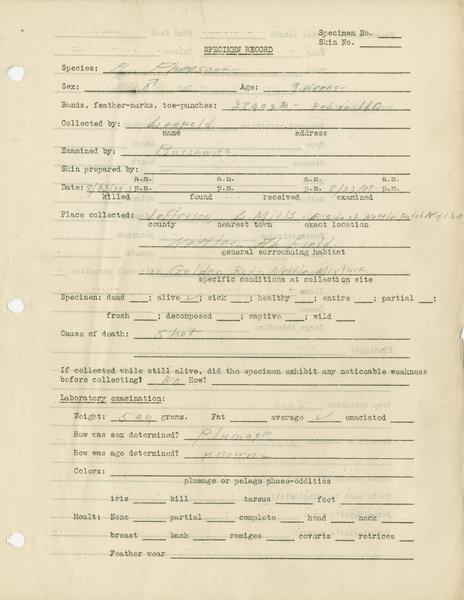 Specimen No.
Skin No.
SPECIMEN RECORD
Species: R. Pheasant
Sex: ♂ Age: 9 weeks-
Bands, feather-marks, toe-punches: Red no 160
Collected by: Leopold
name address
Examined by: Buss
Skin prepared by:
a.m. a.m. a.m. a.m.
Date: p.m. p.m. p.m. p.m.
killed found received examined
Place collected: Jefferson L. Mills. E side of Nettle Patch
county nearest town exact location
Field
general surrounding habitat
Golden Rod - Nettle Mixture
specific conditions at collection site
Specimen: dead ; alive ✓; sick ; healthy ; entire ; partial ;
fresh ; decomposed ; captive ; wild
Cause of death: Shot
If collected while still alive, did the specimen exhibit any noticable weakness
before collecting? No How?
Laboratory examination:
Weight: grams. Fat average ✓ emaciated
How was sex determined? Plumage
How was age determined? Known-
Colors:
plumage or pelage phase-oddities
iris bill tarsus foot
Moult: None partial complete head neck
breast back remiges coverts retrices
Feather wear